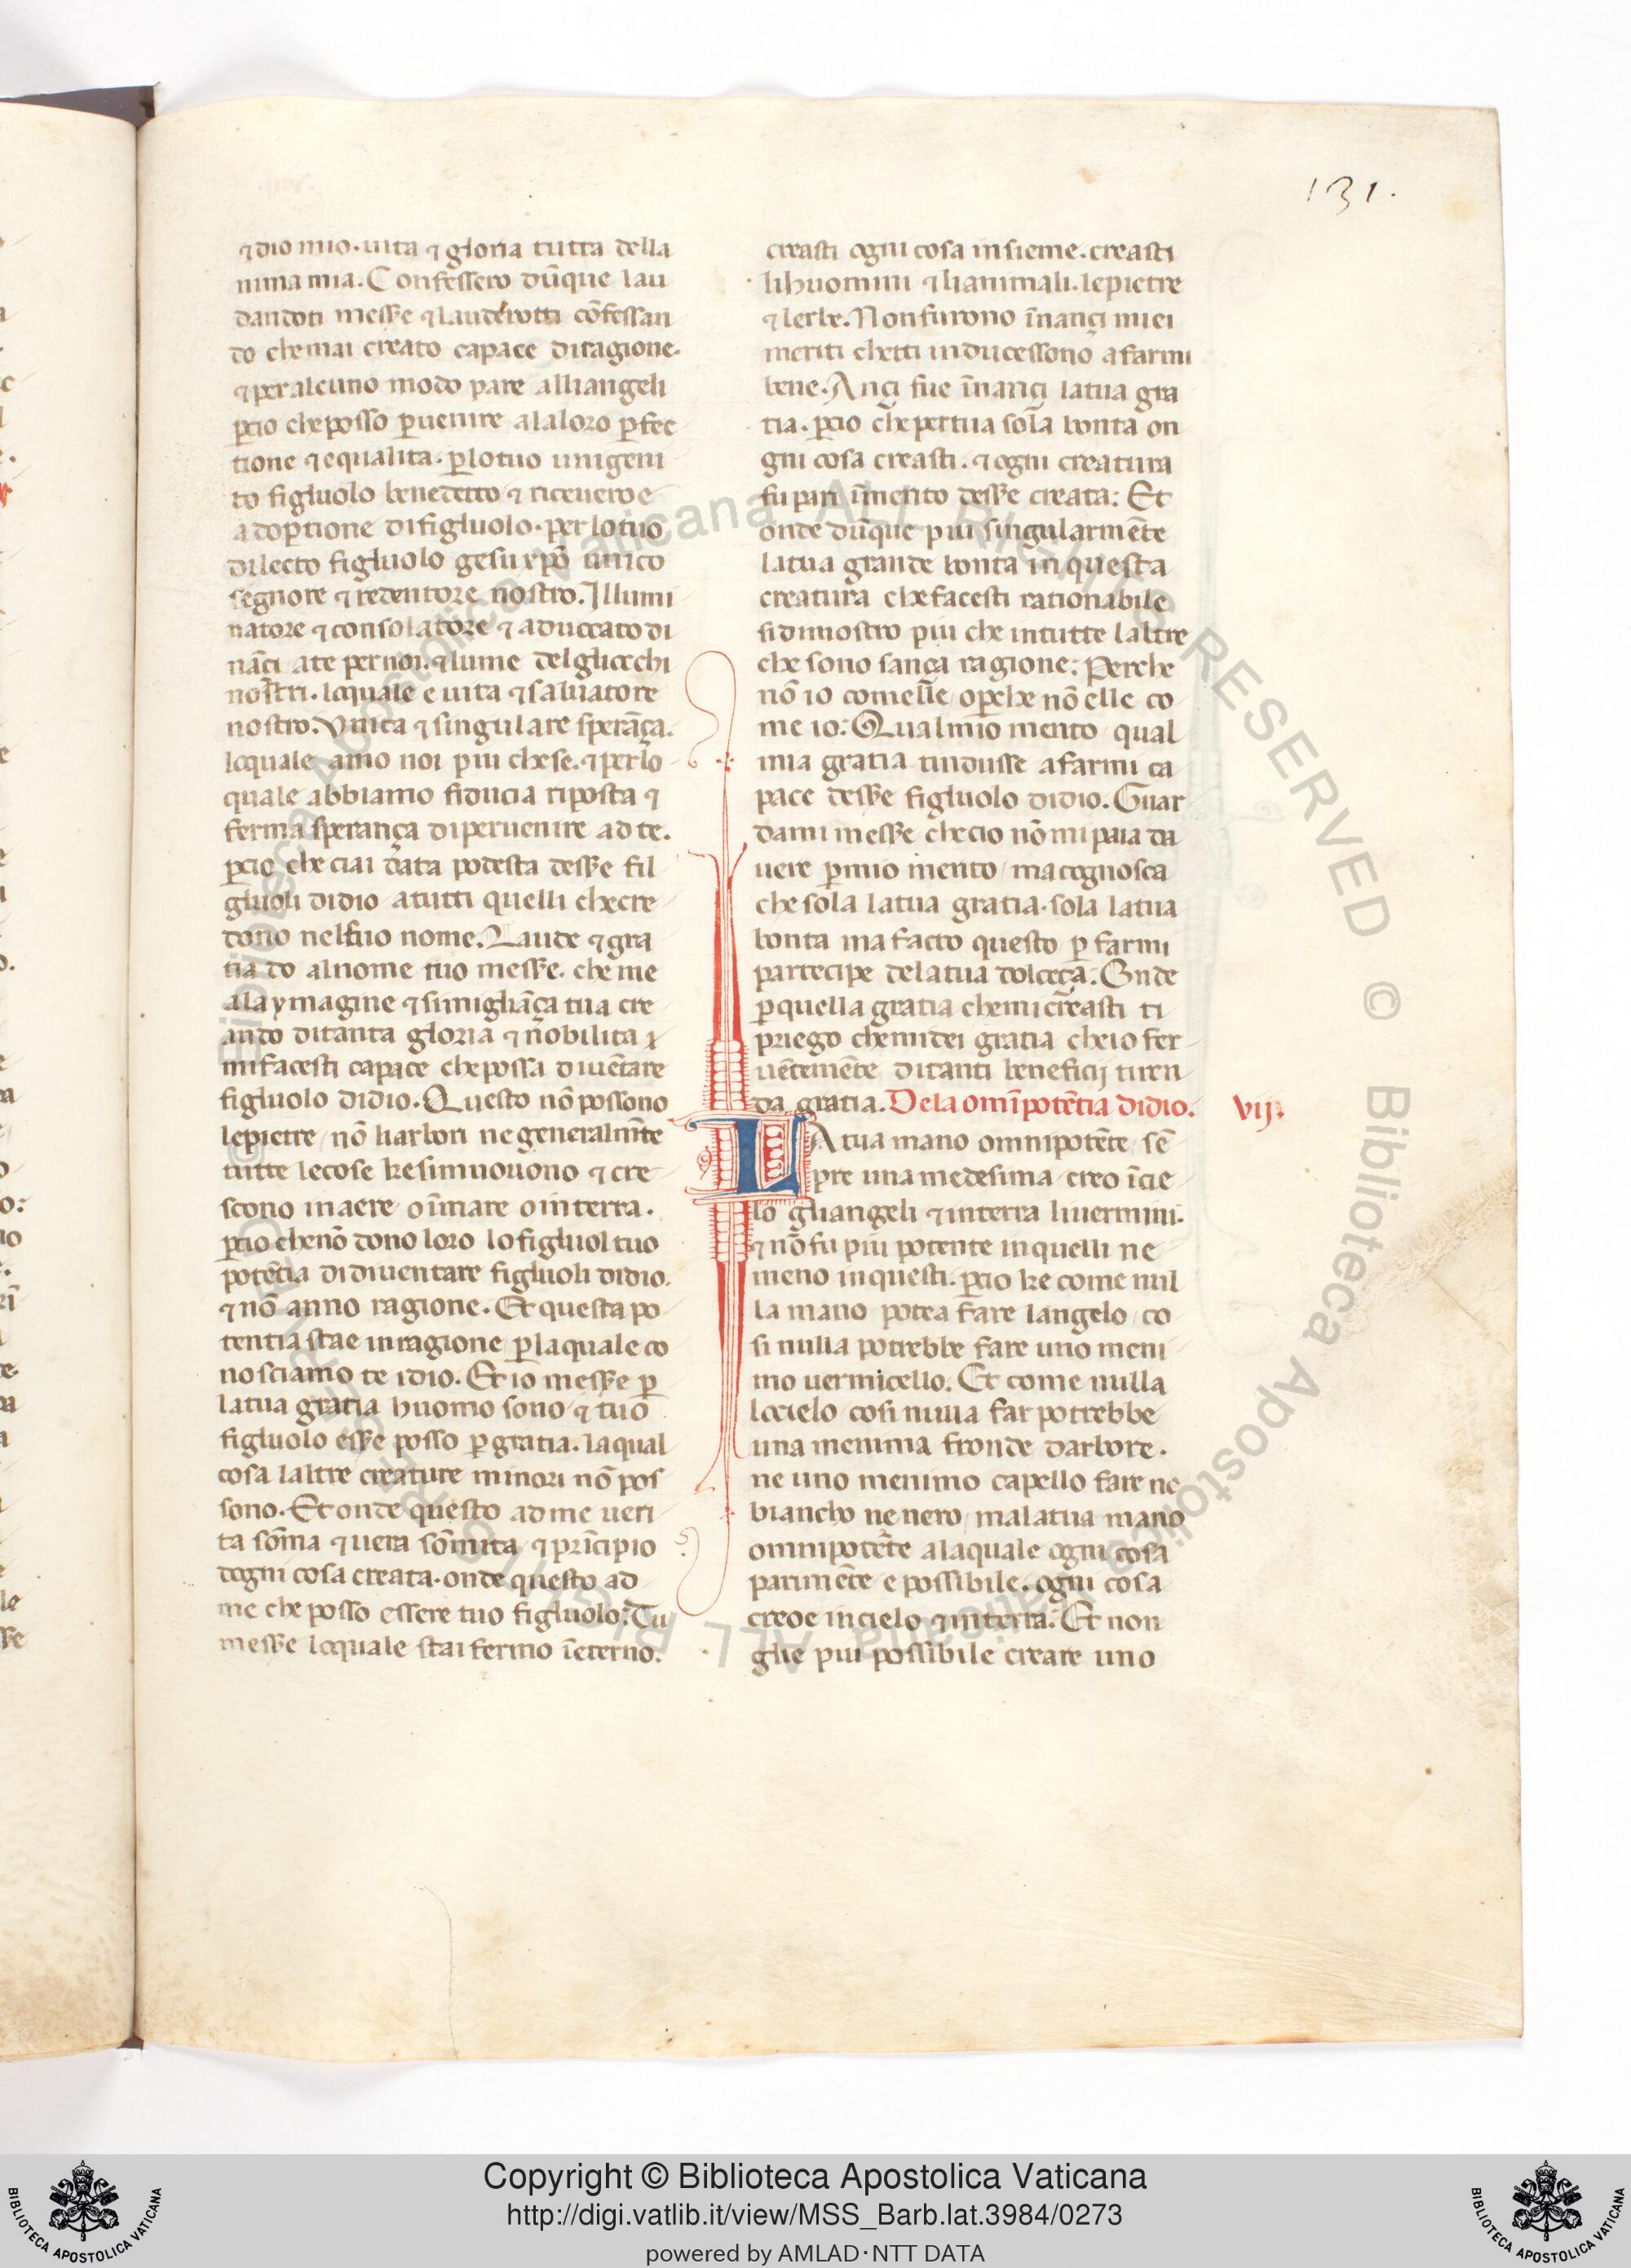 131.
⁊ dio mio. uita ⁊ gloria tutta della
nima mia. Confessero dūque lau
dandoti messe ⁊ lauderotti cōfessan
do che mai creato capace di ragione.
⁊ per alcuno modo pare alliangeli
ꝑcio che posso ꝑuenire a la loro ꝑfec
tione ⁊ equalita. ꝑ lo tuo unigeni
to figluolo benedetto ⁊ riceuero e
adoptione di figluolo. per lo tuo
dilecto figluolo gesu xpō unico
segnore ⁊ redentore nostro. Illumi
natore ⁊ consolatore ⁊ aduccato di
nāci ate per noi. ⁊ lume del gliocchi
nostri. loquale e uita ⁊ saluatore
nostro. Vnica ⁊ singulare sperāça.
loquale amo noi piu che se. ⁊ per lo
quale abbiamo fiducia riposta ⁊
ferma sperança di peruenire ad te.
ꝑcio che ciai data podesta desse fil
gluoli didio atutti quelli che cre
dono nel suo nome. Laude ⁊ gra
tia do al nome tuo messe. che me
ala ymagine ⁊ simigliāça tua cre
ando di tanta gloria ⁊ nobilita
mi facesti capace che possa diuētare
figluolo didio. Questo nō possono
le pietre / nō liarbori ne generalmēte
tutte le cose ke si muouono ⁊ cre
scono in aere o īmare o in terra.
ꝑcio che nō dono loro lo figluol tuo
potētia di diuentare figluoli didio.
⁊ nō anno ragione. Et questa po
tentia stae in ragione ꝑ la quale co
nosciamo te idio. Et io messe ꝑ
la tua gratia huomo sono ⁊ tuo
figluolo esse posso ꝑ gratia. la qual
cosa laltre creature minori nō pos
sono. Et onde questo ad me ueri
ta sōma ⁊ uera sōmita ⁊ prīcipio
dogni cosa creata. onde questo ad
me che posso essere tuo figluolo. Tu
messe loquale stai fermo īeterno.
creasti ogni cosa insieme. creasti
lihuomini ⁊ lianimali. le pietre
⁊ lerbe. Non furono īnançi miei
meriti chetti inducessono a farmi
bene. Ançi fue īnançi la tua gra
tia. ꝑcio che per tua sola bonta on
gni cosa creasti. ⁊ ogni creatura
fu pari īmerito desse creata: Et
onde dūque piu singularmēte
la tua grande bonta in questa
creatura che facesti rationabile
si dimostro piu che in tutte laltre
che sono sança ragione: Perche
nō io come elle / o ꝑche nō elle co
me io: Qual mio merito qual
mia gratia tindusse a farmi ca
pace desse figluolo didio. Guar
dami messe che cio nō mi paia da
uere ꝑ mio merito / ma cognosca
che sola la tua gratia. sola la tua
bonta ma facto questo ꝑ farmi
partecipe de la tua dolceça. Onde
ꝑ quella gratia che mi creasti ti
priego che mi dei gratia che io fer
uētemēte di tanti beneficij ti ren
da gratia. De la omīpotētia didio. Vij.
LA tua mano omnipotēte / sē
pre una medesima / creo īcie
lo gliangeli ⁊ in terra li uermini.
⁊ nō fu piu potente in quelli ne
meno in questi. ꝑcio ke come nul
la mano potea fare langelo / co
si nulla potrebbe fare uno meni
mo uermicello. Et come nulla
lo cielo / cosi nulla far potrebbe
una menima fronde darbore.
ne uno menimo capello fare ne
biancho ne nero / ma la tua mano
omnipotēte a la quale ogni cosa
parimēte e possibile. ogni cosa
creoe in cielo ⁊ in terra. Et non
glie piu possibile creare uno
Copyright © Biblioteca Apostolica Vaticana
http://digi.vatlib.it/view/MSS_Barb.lat.3984/0273
powered by AMLAD·NTT DATA